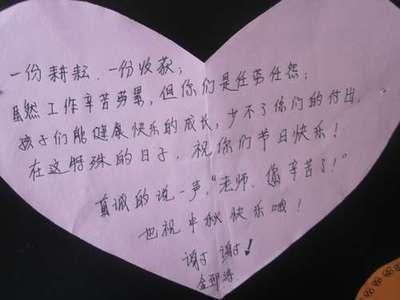 一份耕耘、一份收获;
虽然工作辛苦劳累,但你们是任劳任怨;
孩子们能健康快乐的成长,少不了你们的付出.
在这特殊的日子,祝你们节日快乐!
真诚的说一声,"老师、您辛苦了!"
也祝中秋快乐哦!
谢谢!